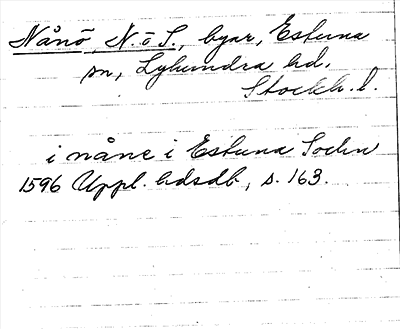 Nånö, N. o S., byar, Estuna
sn, Lyhundra hd,
Stockh. l.
i nåne i Estuna Sochn
1596 Uppl. hdsdb, s. 163.